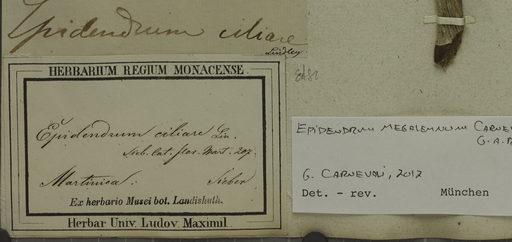 Epidendrum ciliare
Lindley
HERBARIUM REGIUM MONACENSE
Epidendrum ciliare Lin.
Sieb. Cat. flor. Mart. 207.
Martinica. Sieber
Ex herbario Musei bot. Landishuth.
Herbar Univ. Ludov. Maximil.
EPIDENDRUM MEGALEMNUM CARNEV
G. CARNEVALI, 2012
Det. - rev. München